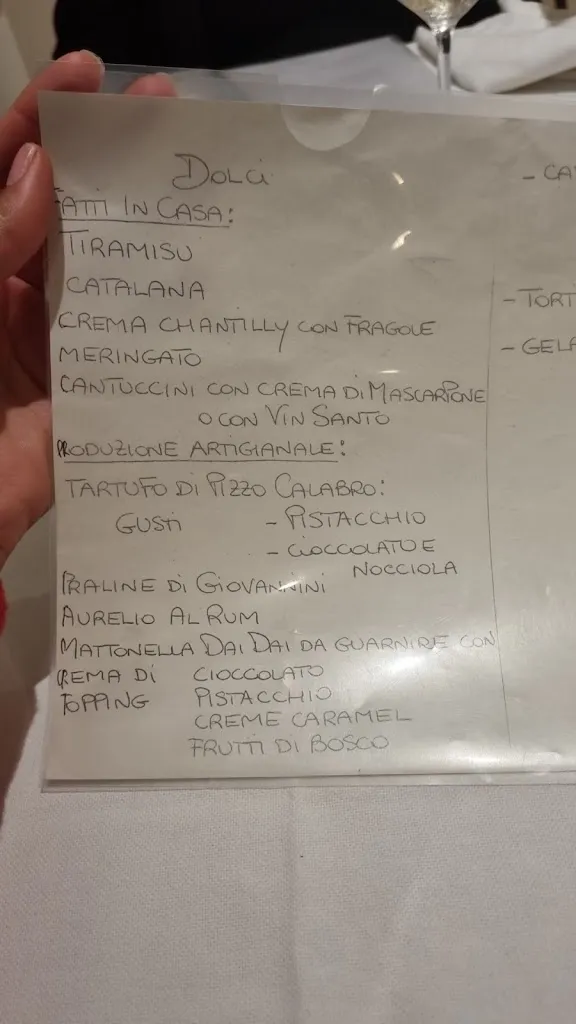 DOLCI
FATTI IN CASA:
TIRAMISU
CATALANA
CREMA CHANTILLY CON FRAGOLE
MERINGATO
CANTUCCINI CON CREMA DI MASCARPONE
O CON VIN SANTO
PRODUZIONE ARTIGIANALE:
TARTUFO DI PIZZO CALABRO:
GUSTI - PISTACCHIO
- CIOCCOLATO E
NOCCIOLA
PRALINE DI GIOVANNINI
AURELIO AL RUM
MATTONELLA DAI DAI DA GUARNIRE CON
CREMA DI CIOCCOLATO
TOPPING PISTACCHIO
CREME CARAMEL
FRUTTI DI BOSCO
- CA
- TORT
- GELA